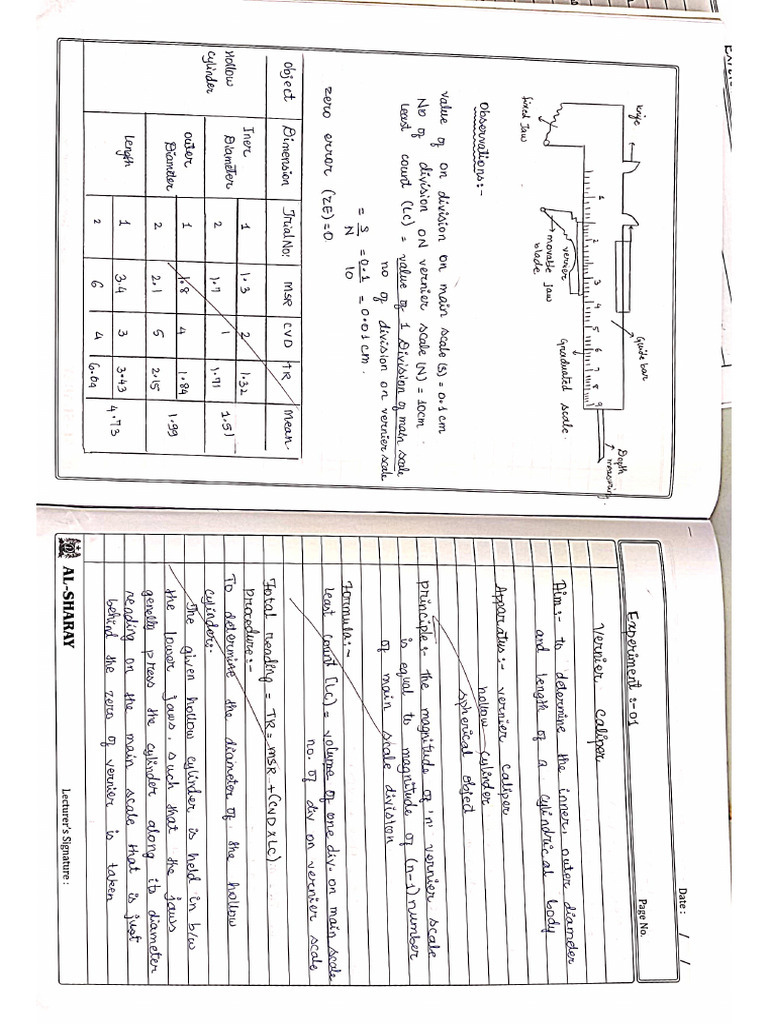 Exp
knife
Guide bar
Depth
measuring
1 2 3 4 5 6 7 8 9
fixed Jaw
vernier
movable Jaw
blade.
Graduated scale.
Observations:-
value of on division on main scale (s) = 0.1 cm
No of division on vernier scale (N) = 10cm
least count (LC) = value of 1 Division of main scale
no of division on vernier scale
= S/N = 0.1/10 = 0.01 cm.
zero error (ZE)=0
Object Dimension Trial No: MSR CVD TR Mean
Hollow cylinder Iner Diameter 1 1.3 2 1.32 1.51
2 1.7 1 1.71
outer Diameter 1 1.8 4 1.84 1.99
2 2.1 5 2.15
length 1 3.4 3 3.43 4.73
2 6 4 6.04
Date: / /
Experiment :-01
Page No.
Vernier caliper
Aim:- to determine the inner, outer diameter
and length of a cylindrical body
Apparatus:- vernier calliper
hollow cylinder
spherical object
principle:- the magnitude of 'n' vernier scale
is equal to magnitude of (n-1) number
of main scale division
Formula:-
least count [LC) = volume of one div. on main scale
no. of div on vernier scale
Total reading = TR = MSR + (CVD X LC)
Procedure:-
To determine the diameter of the hollow
cylinder:-
The given hollow cylinder is held in b/w
the lower jaws. such that the jaws
genelly press the cylinder along its diameter
reading on the main scale that is just
behind the zero of vernier is taken
AL-SHARAY
Lecturer's Signature :